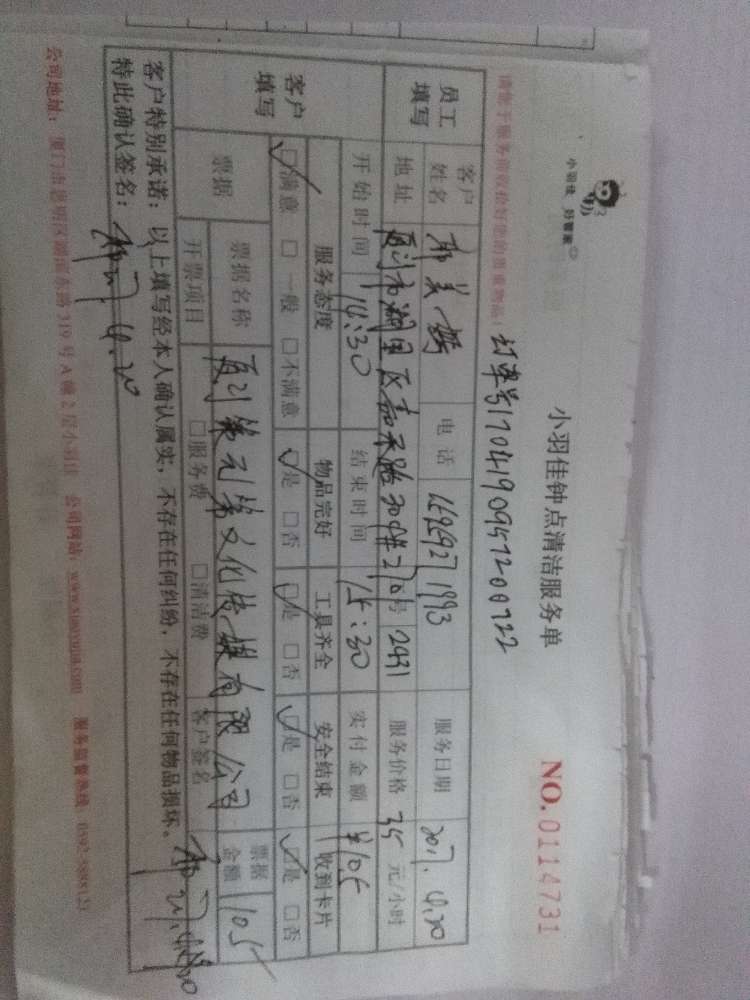 小羽佳 好管家
小羽佳钟点清洁服务单
NO.0114731
请您于服务前收拾好您的贵重物品！
订单号170419095720072
员工填写 客户姓名 电话 服务日期 2017.4.20
地址 厦门市湖里区嘉禾路 号 2931 服务价格 35 元/小时
开始时间 14:30 结束时间 实付金额 ¥105
客户填写 服务态度 物品完好 工具齐全 安全结束 收到卡片
☑满意 □一般 □不满意 ☑是 □否 ☑是 □否 ☑是 □否 ☑是 □否
票据 票据名称 厦门 文化传媒有限公司 票据金额 105
开票项目 □服务费 □清洁费 客户签名
客户特别承诺：以上填写经本人确认属实，不存在任何纠纷，不存在任何物品损坏。
特此确认签名： 4.20
公司地址：厦门市思明区湖滨东路319号A幢2层小羽佳 公司网站：www.xiaoyujia.com 服务监督热线：0592-5888121